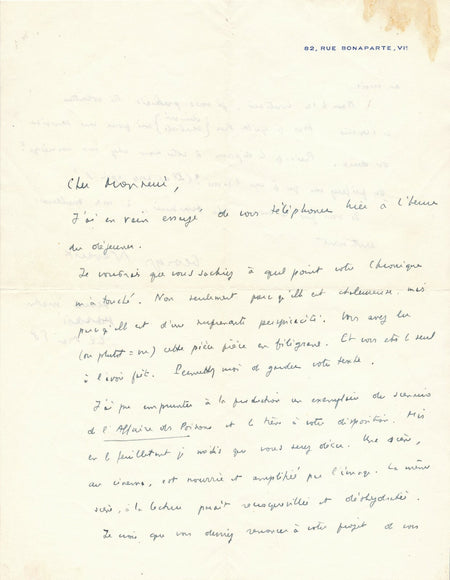 82, RUE BONAPARTE, VIᵉ
Cher Monsieur,
J'ai en vain essayé de vous téléphoner hier à l'heure
du déjeuner.
Je voudrais que vous sachiez à quel point votre Chronique
m'a touché. Non seulement parce qu'elle est chaleureuse mais
parce qu'elle est d'une surprenante perspicacité. Vous avez lu
(ou plutôt = vu) cette pièce pièce en filigrane. Et vous êtes le seul
à l'avoir fait. Permettez moi de garder votre texte.
J'ai pu emprunter à la production un exemplaire du scénario
de l'Affaire des Poisons et le tiens à votre disposition. Mais
en le feuilletant je me dis que vous serez déçu. Une scène,
au cinéma, est nourrie et amplifiée par l'image. La même
scène, à la lecture paraît recroquevillée et déshydratée.
Je crois que vous devriez renoncer à votre projet de vous